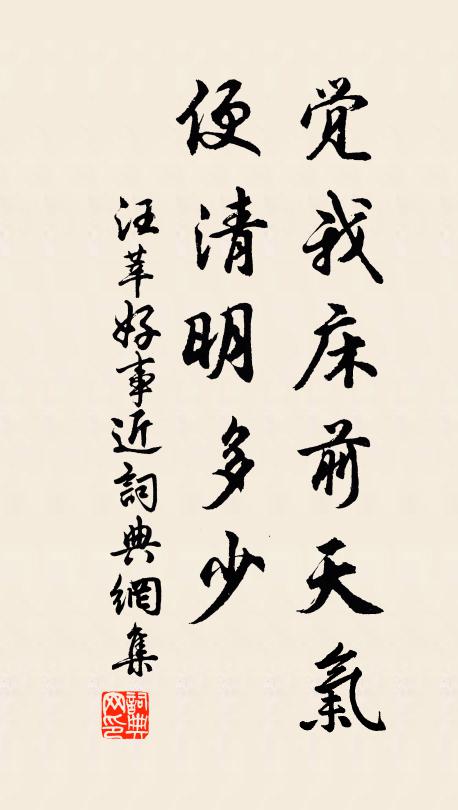 觉我床前天氣
便清明多少
汪莘好事近詞典網集
詞典网印